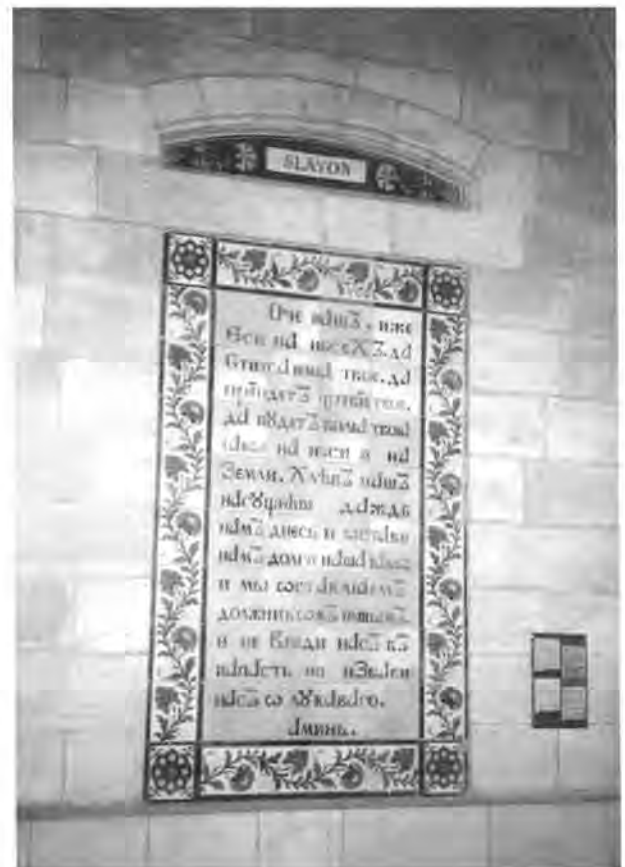 SLAVON
Оче нашъ, иже
Єси на н҃бсехъ. да
Ст҃итсѧ имѧ твоє. да
прїидетъ црс҃твїе твоє.
да бꙋдетъ волѧ твоѧ
на н҃бси и на
Земли. Хлѣбъ нашъ
насꙋщный даждь
намъ днесь и ѡстави
намъ долги нашѧ
и мы ѡставлѧемъ
должникѡмъ нашымъ
и не Введи насъ въ
напасть но иЗбави
насъ ѿ лꙋкаваго.
Аминь.